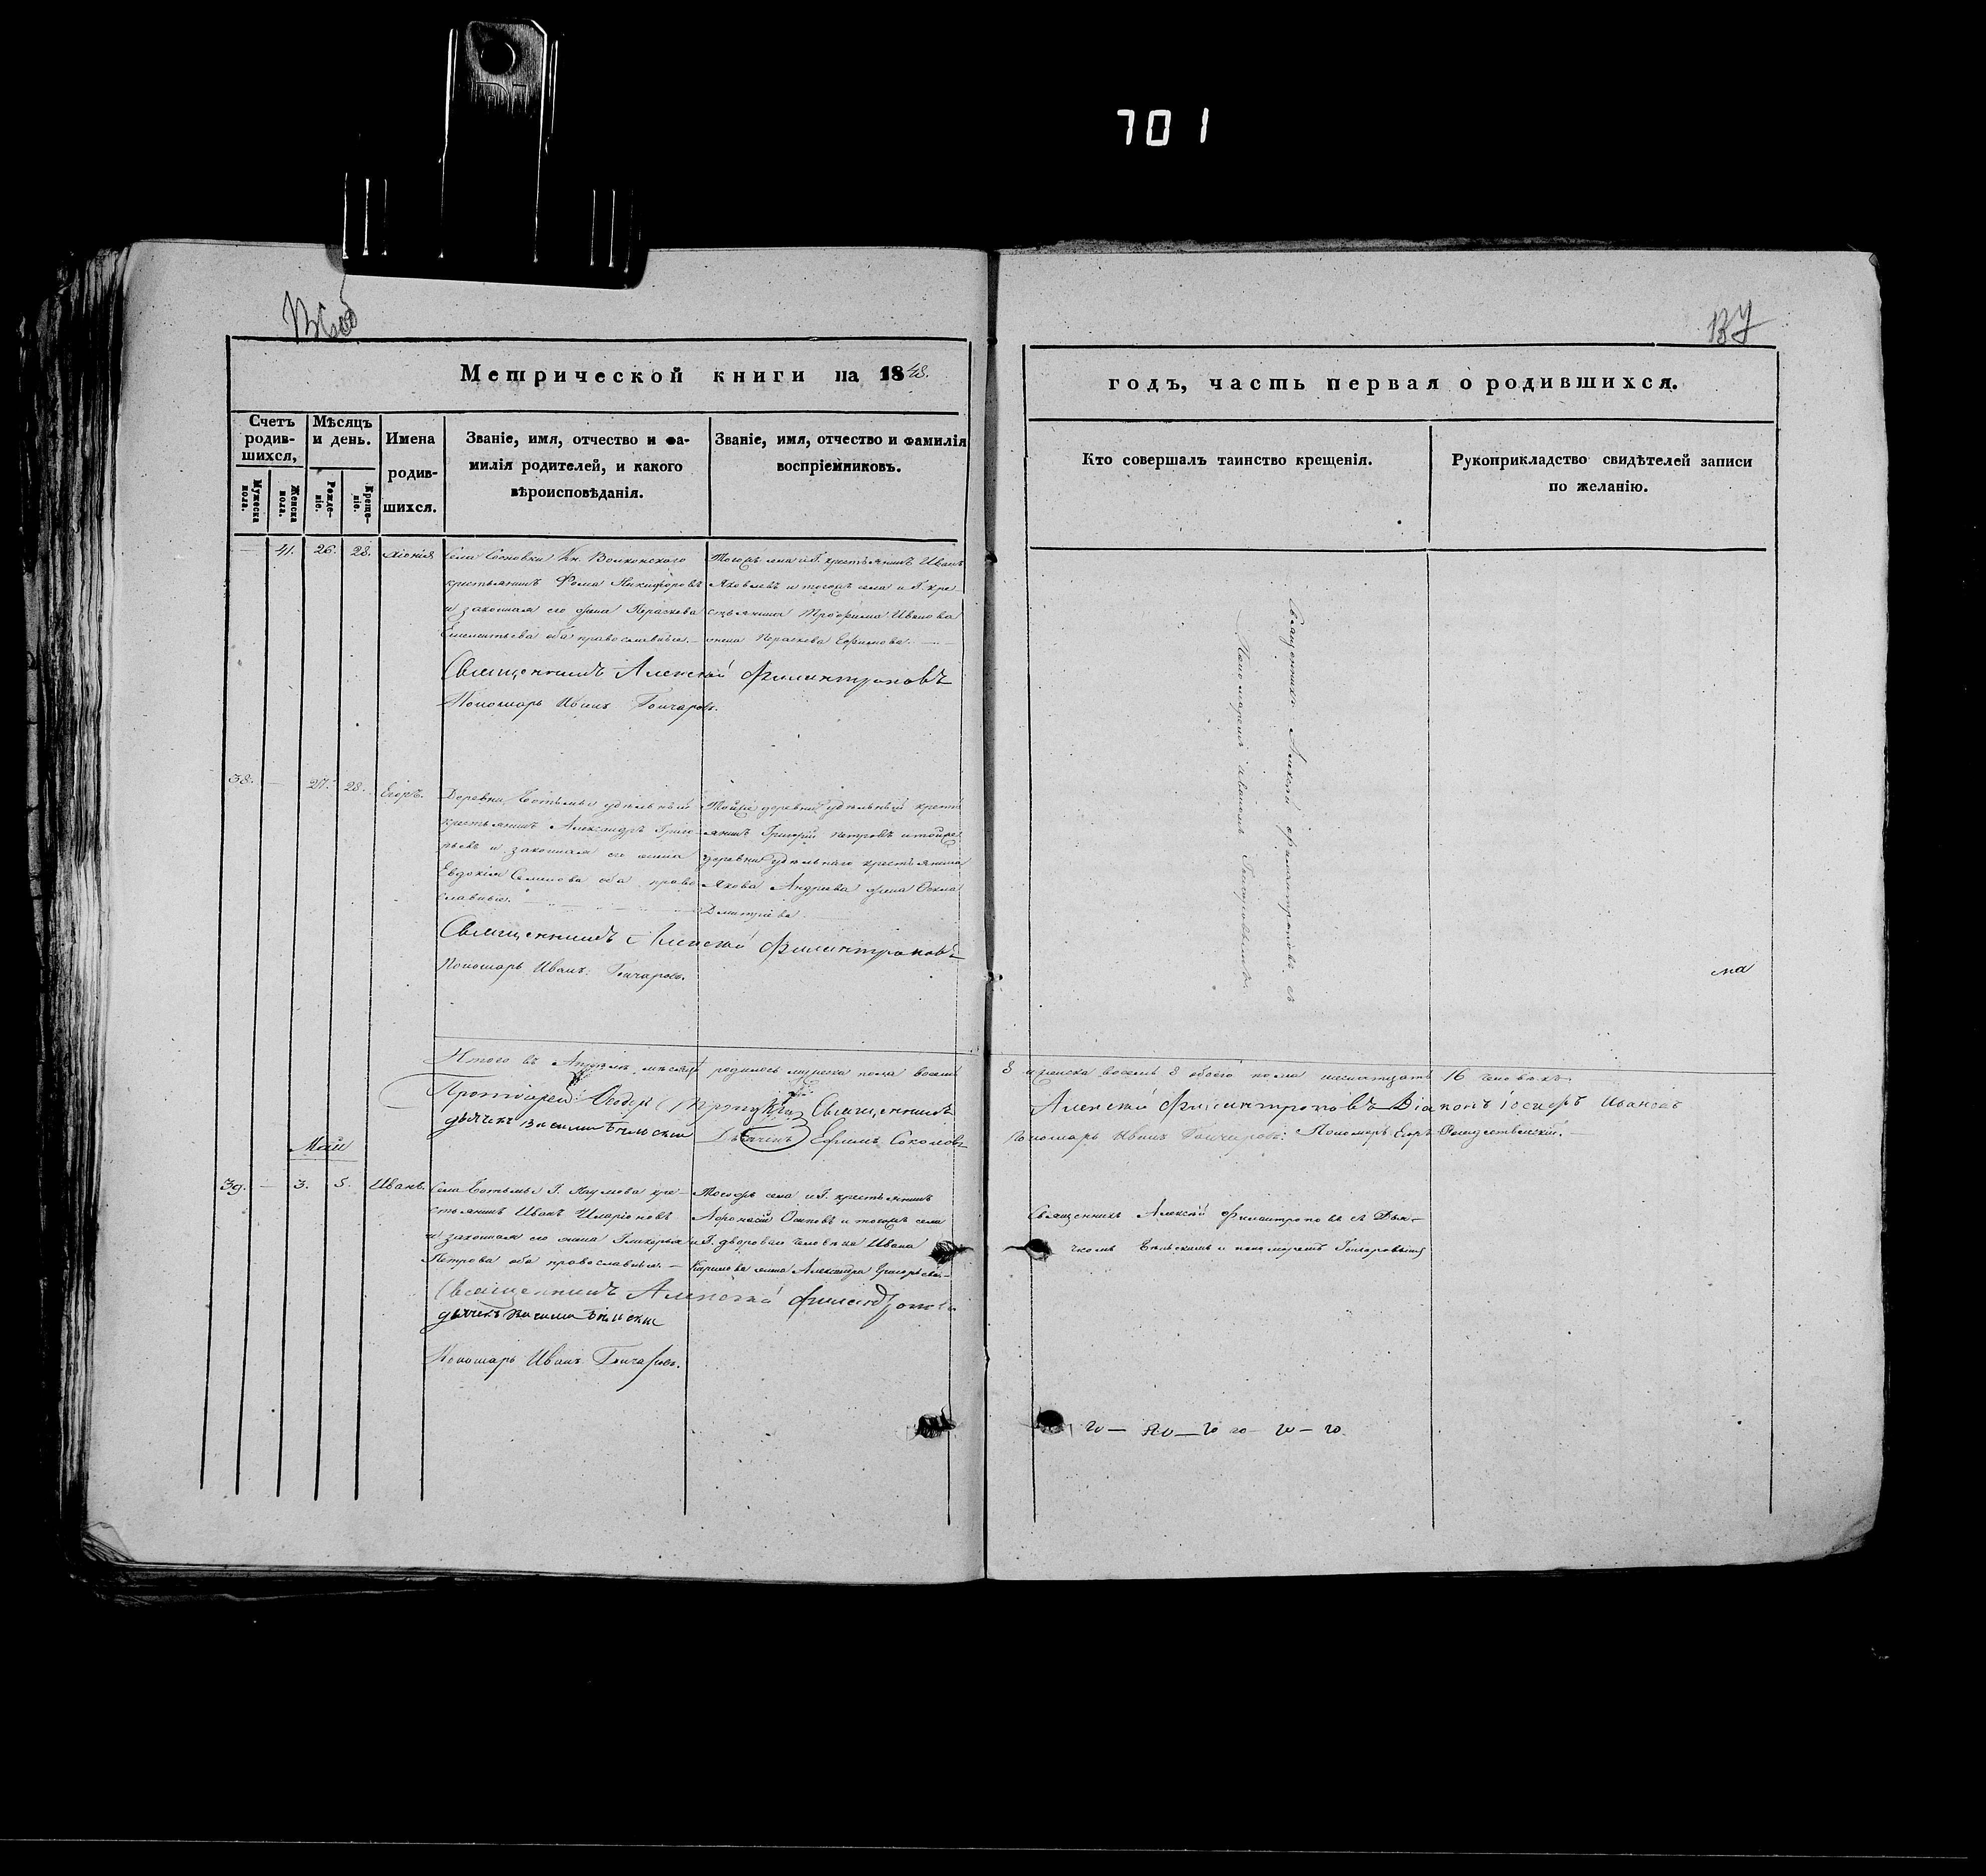 701
137
Метрической книги на 1848.
годъ, часть первая о родившихся.
Счетъ родившихся,
Мужеска пола.
Женска пола.
Мѣсяцъ и день.
Рождение.
Крещение.
Имена родившихся.
Званіе, имя, отчество и фамилія родителей, и какого вѣроисповѣданія.
Званіе, имя, отчество и фамилія воспріемниковъ.
Кто совершалъ таинство крещенія.
Рукоприкладство свидѣтелей записи по желанію.
— 41. 26. 28. Хіонія
Села Сосновки Кн. Волконского
крестьянинъ Фома Никифоровъ
и законная его жена Параскева
оба православные.
Тогожъ села и Г. крестьянинъ Иванъ
Яковлевъ и тогожъ села и Г. кре-
стьянина Трофима Иванова
жена Параскева Ефимова.
Священникъ Алексій Филантроповъ
Пономарь Иванъ Гончаровъ.
Священникъ Алексій Филантроповъ съ
Пономаремъ Иваномъ Гончаровымъ.
38. — 27. 28. Егоръ.
Деревни удѣльный
крестьянинъ Александръ Григо-
рьевъ и законная его жена
Евдокія Семенова оба право-
славные.
Тойже деревни удѣльный кресть-
янинъ Григорій Петровъ и тойже
деревни удѣльнаго крестьянина
Якова Андреева жена
Дмитріева
Священникъ Алексій Филантроповъ
Пономарь Иванъ Гончаровъ.
на
Итого въ Апрѣлѣ мѣсяцѣ родилось мужеска пола восемь
8 и женска восемь 8 обоего пола шеснатцать 16 человѣкъ
Протоіерей Священникъ
Алексій Филантроповъ Діаконъ Іосифъ Ивановъ
дьячекъ Василій Бѣльскій Дьячекъ Ефимъ Соколовъ
Пономарь Иванъ Гончаровъ. Пономарь Егоръ Рождественскій.
Май
39. — 3. 5. Иванъ.
Села Г. Наумова кре-
стьянинъ Иванъ Иларіоновъ
и законная его жена Гликерья
Петрова оба православные. —
Тогожъ села и Г. крестьянинъ
Афонасій Осиповъ и тогожъ села
и Г. двороваго человѣка Ивана
жена Александра Григорьева
Священникъ Алексій Филантропо въ съ Дья-
чкомъ Бѣльскимъ и пономаремъ Гончаровымъ
Священникъ Алексій Филантроповъ
дьячекъ Василій Бѣльскій
Пономарь Иванъ Гончаровъ.